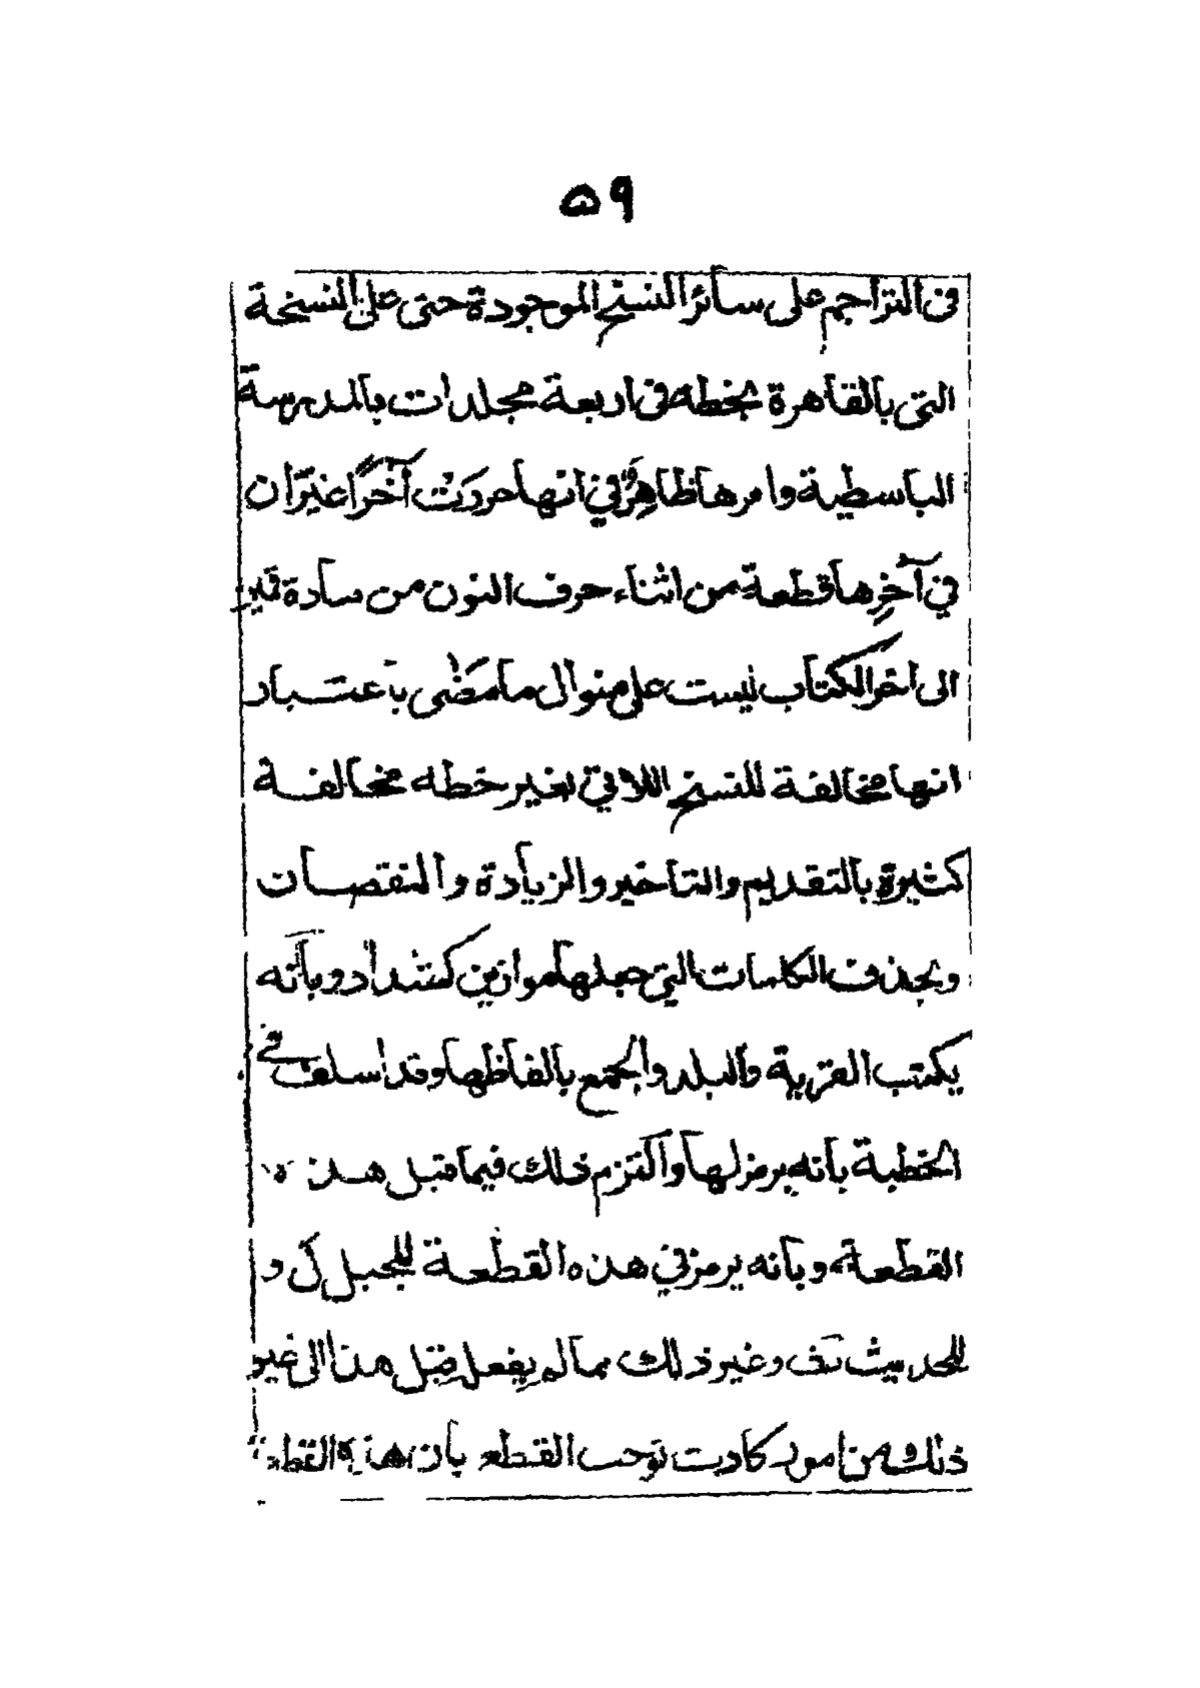 ٥٩
في التراجم على سائر النسخ الموجودة حتى على النسخة
التي بالقاهرة بخطه في اربعة مجلدات بالمدرسة
الباسطية وامرها ظاهرٌ في انها حررت آخرًا غير ان
في آخرها قطعة من اثناء حرف النون من مادة قمين
الى اخر الكتاب ليست على منوال ما مضى باعتبار
انها مخالفة للنسخ اللاتي بغير خطه مخالفة
كثيرة بالتقديم والتاخير والزيادة والنقصان
وبحذف الكلمات التي جعلها موازين كشداد وبأنه
يكتب القرية والبلد والجمع بالفاظها وقد اسلف في
الخطبة بانه يرمز لها والتزم ذلك فيما قبل هذه
القطعة وبانه يرمز في هذه القطعة للجبل ل و
للحديث ث وغير ذلك مما لم يفعل قبل هذا الى غير
ذلك من امور كادت توجب القطع بان هذه القطعة